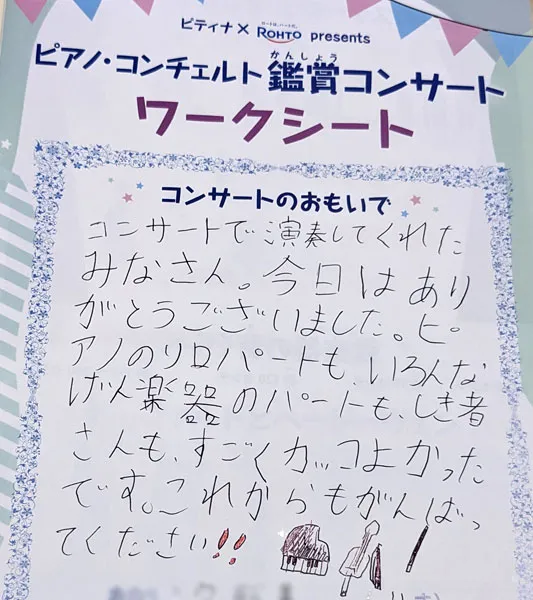 ピティナ × ROHTO presents
かんしょう
ピアノ・コンチェルト 鑑賞コンサート
ワークシート
コンサートのおもいで
コンサートで演奏してくれた
みなさん。今日はあり
がとうございました。ピ
アノのソロパートも、いろんな
げん楽器のパートも、しき者
さんも、すごくカッコよかった
です。これからもがんばっ
てください!!